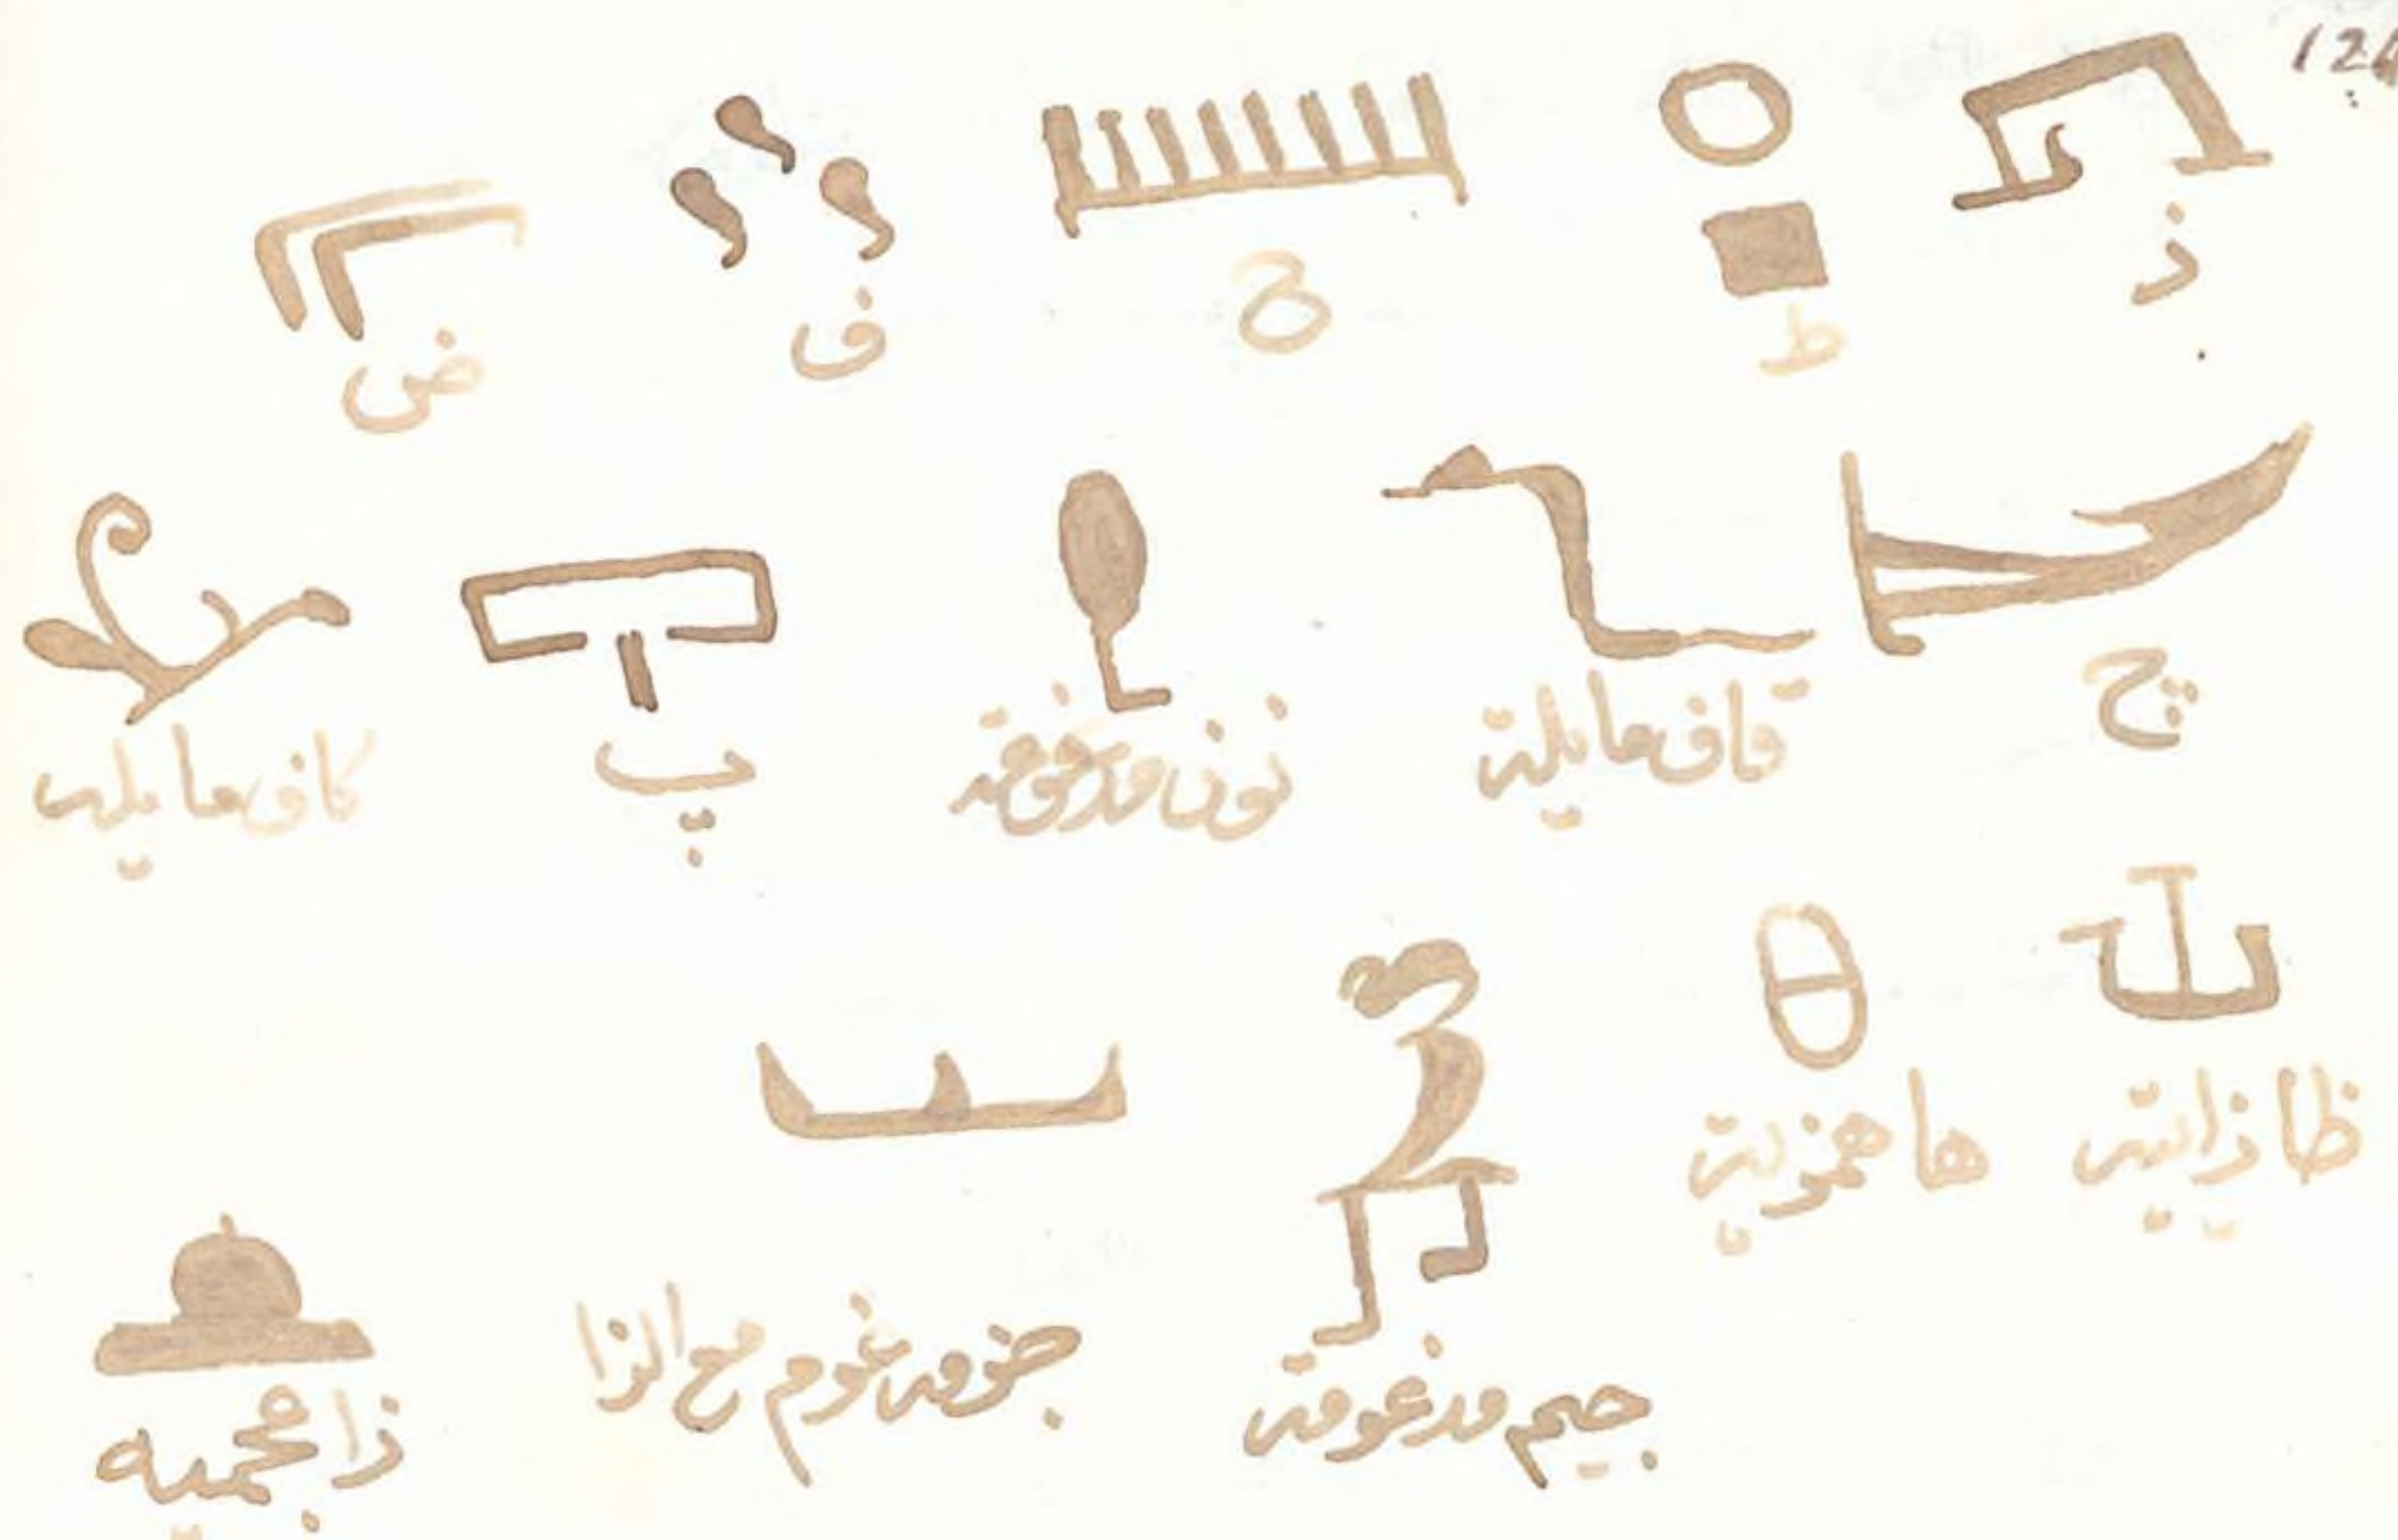 124
ذ ط ح ف ض
چ قاف مايلة نون مدخوخة پ كاف مايلية
ظا ذايية ها همزوية
جيم مدغومة جزومدغوم مع الزا ذا جحمية